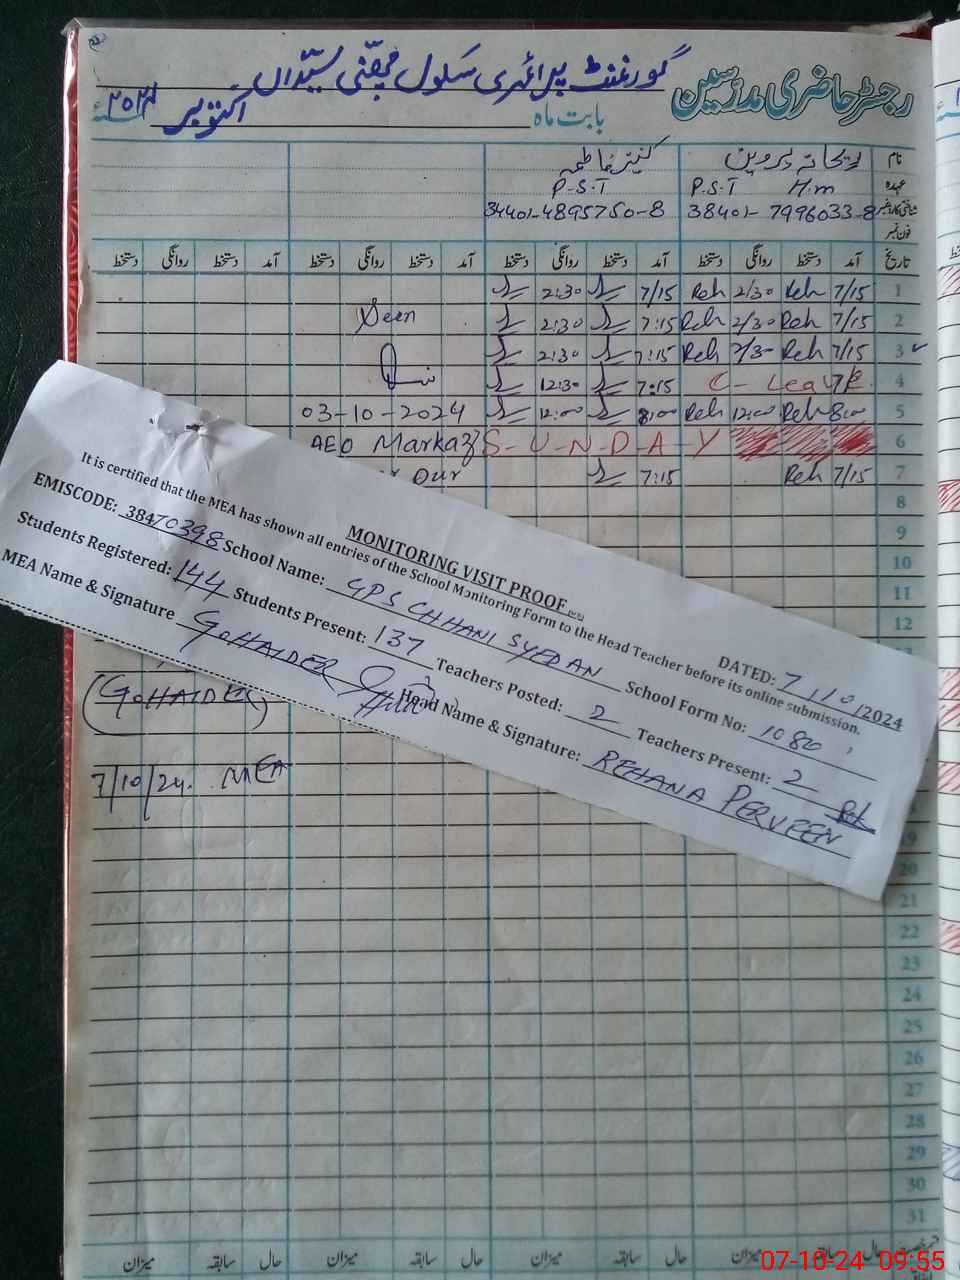 رجسٹر حاضری مدرسین گورنمنٹ پرائمری سکول چھنی سیّداں
بابت ماہ اکتوبر ۲۰۲۴ء
نام ریحانہ پروین کنیز فاطمہ
عہدہ P.S.T H.m P.S.T
شناختی کارڈ نمبر 38401-7996033-8 34401-4895750-8
فون نمبر
تاریخ آمد دستخط روانگی دستخط آمد دستخط روانگی دستخط آمد دستخط روانگی دستخط آمد دستخط روانگی دستخط
1 7/15 Reh 2/30 Reh 7/15 2:30
2 7/15 Reh 2/30 Reh 7:15 2:30 Seen
3 7/15 Reh 2/30 Reh 7:15 2:30
4 C - Leave 7:15 12:30
5 8:00 Reh 12:00 Reh 8:00 12:00 03-10-2024
6 S-U-N-D-A-Y AEO Markaz
7 7/15 Reh 7:15 Dur
8
9
10
11
12
MONITORING VISIT PROOF
DATED: 7/10/2024
It is certified that the MEA has shown all entries of the School Monitoring Form to the Head Teacher before its online submission.
EMISCODE: 38470398 School Name: GPS CHHANI SYEDAN School Form No: 1080
Students Registered: 144 Students Present: 137 Teachers Posted: 2 Teachers Present: 2
MEA Name & Signature G.HAIDER Head Name & Signature: REHANA PERVEEN Reh
(G.HAIDER)
7/10/24. MEA
19
20
21
22
23
24
25
26
27
28
29
30
31
حال سابقہ میزان حال سابقہ میزان حال سابقہ میزان حال سابقہ میزان
07-10-24 09:55